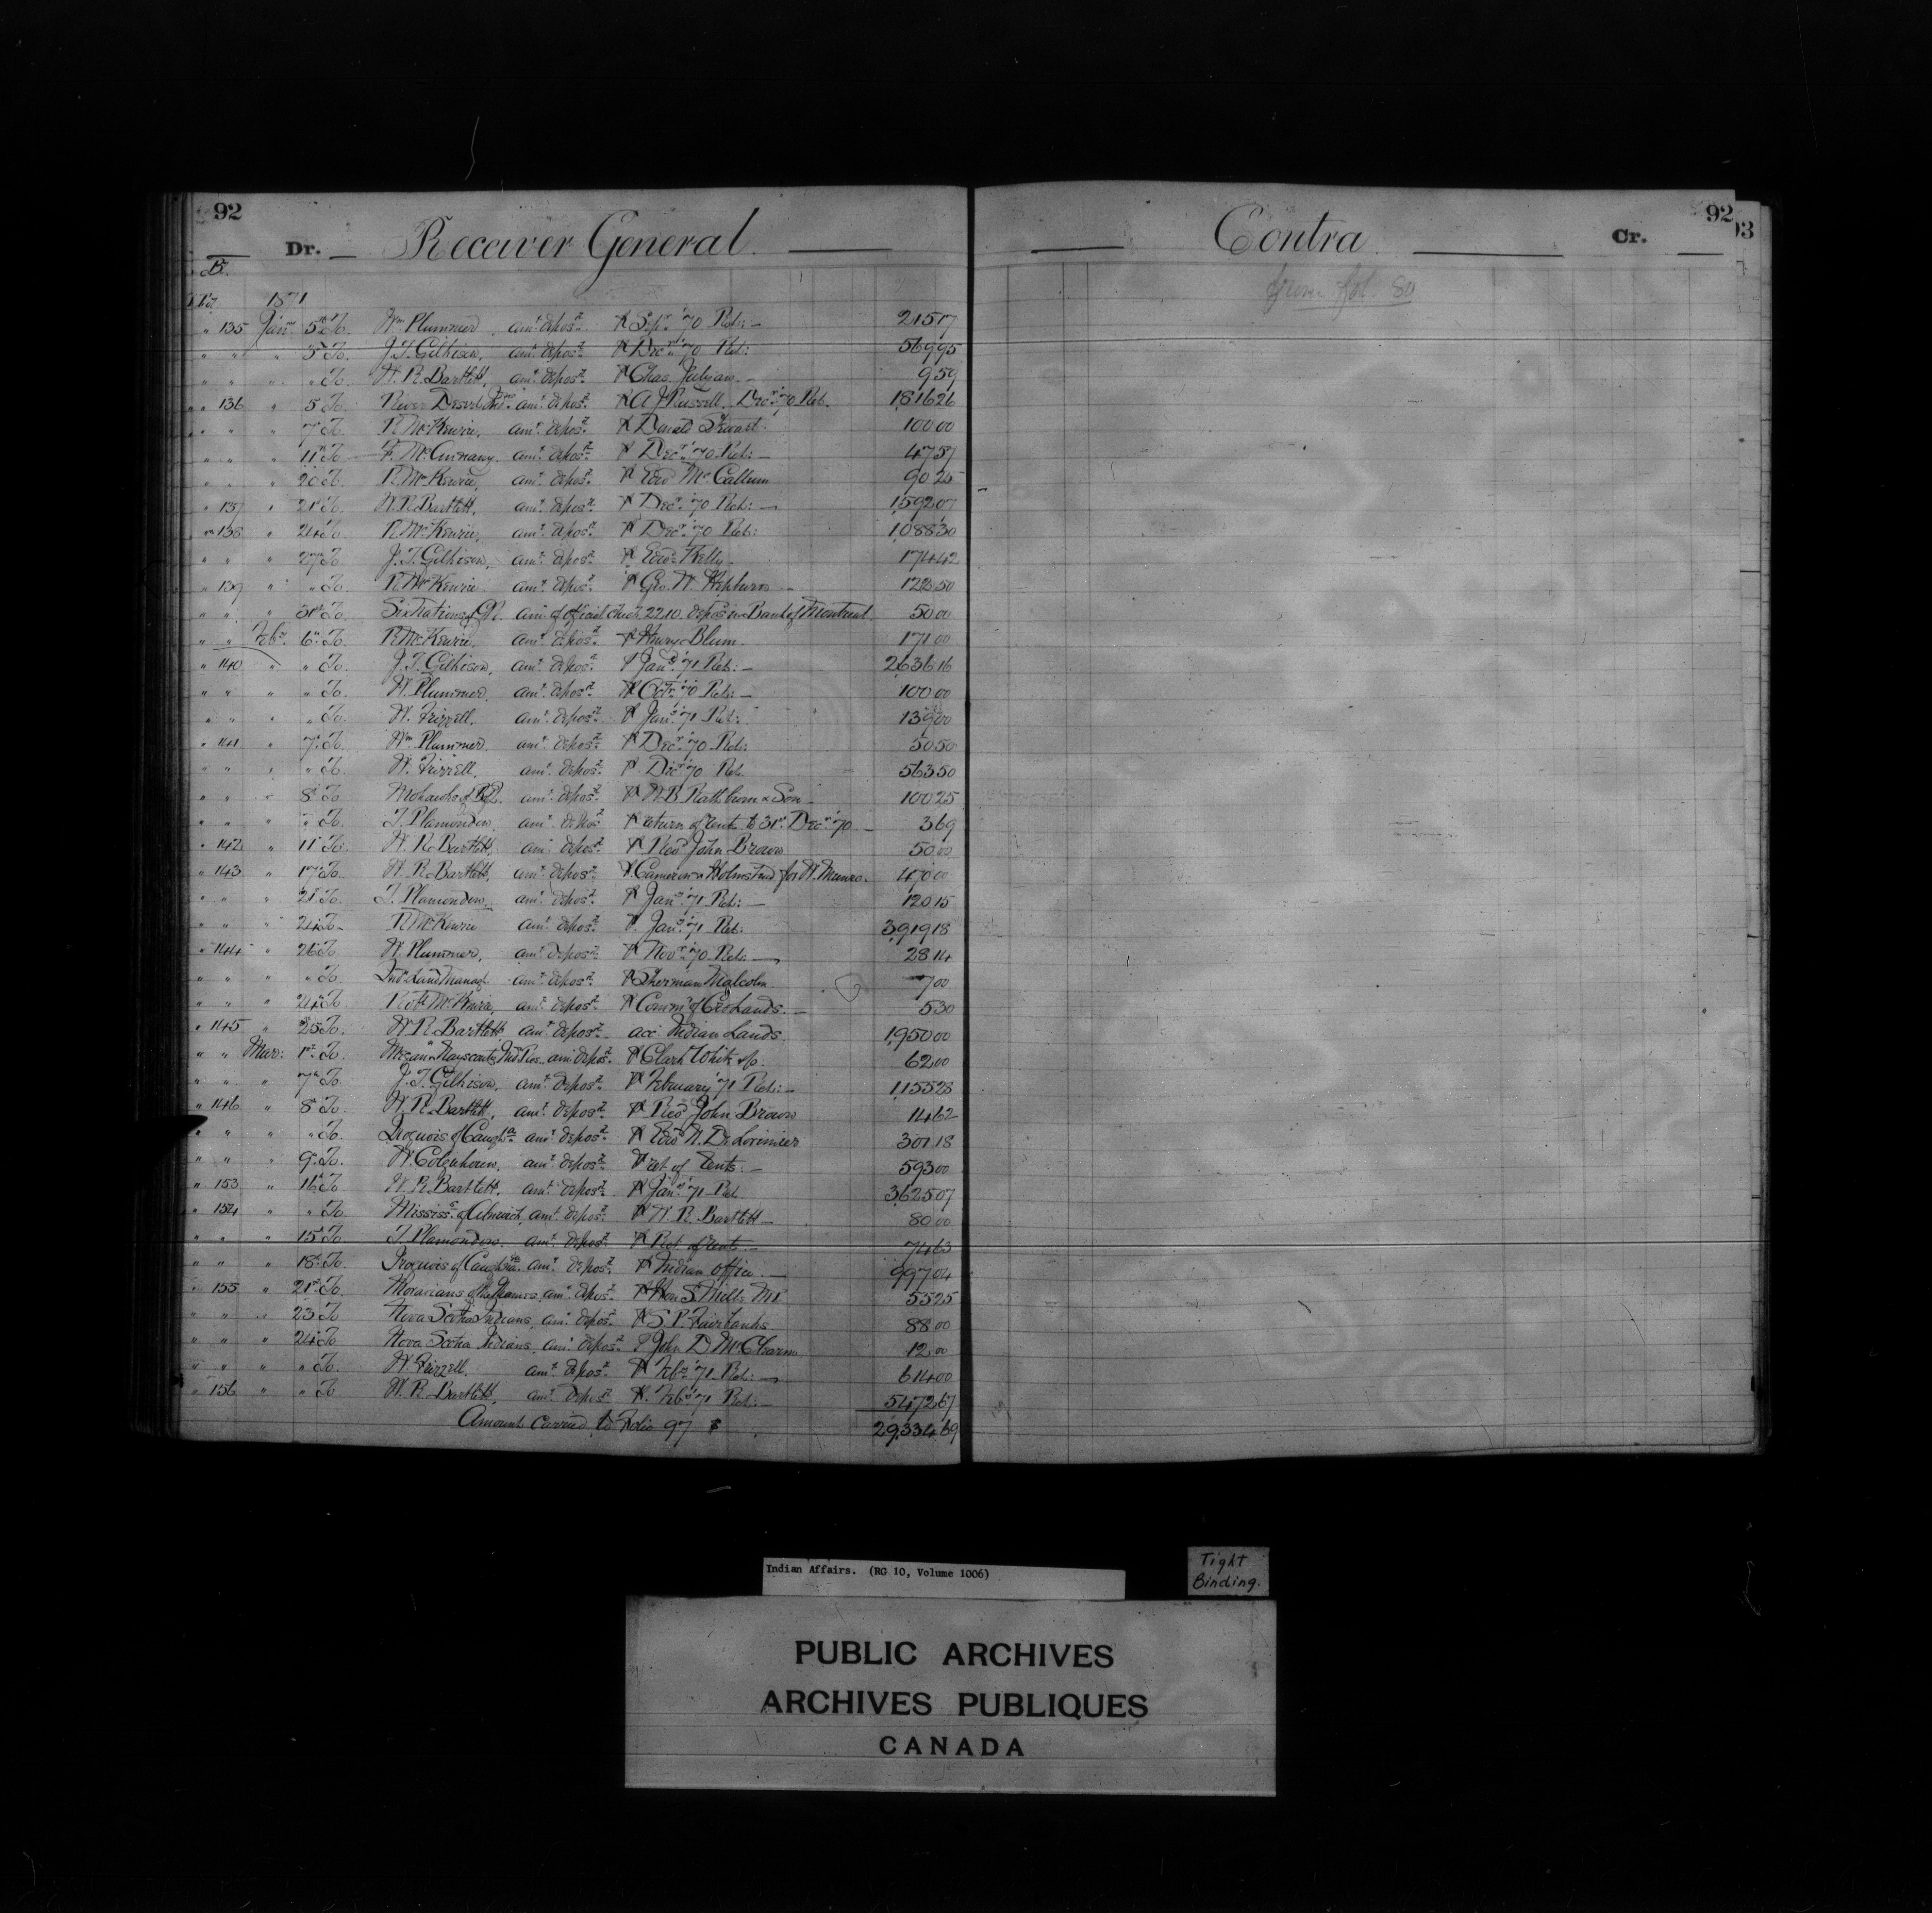 92
Dr. Receiver General
1871
" 135 Jany 5th To Wm Plummer, amt. depost. ℔ Sepr '70 Ret:
" " " 5 To J. T. Gilkison, amt. depost. ℔ Decr '70 Ret: 569 95
" " " " To W. R. Bartlett, amt. depost. ℔ Chas. 9 59
" " 136 " 5 To River Desert Inds. amt. depost. ℔ A. J. Russell. Decr. '70 Ret. 1,816 26
" " " 7 To R. McKenzie, amt. depost. ℔ Donald Stewart 100 00
" " " 11th To amt. depost. ℔ Decr. '70 Ret:
" " " 20 To R. McKenzie, amt. depost. ℔ Edwd McCallum 90 25
" 137 " 21st To W. R. Bartlett, amt. depost. ℔ Decr. '70 Ret: 1,592 07
" 138 " 24th To R. McKenzie, amt. depost. ℔ Decr. '70 Ret: 1,088 30
" " " 27th To J. T. Gilkison, amt. depost. ℔ Edwd Kelly 174 42
" 139 " " To R. McKenzie amt. depost. ℔ Geo. W. Hepburn 50
" " " 31st To Six Nations of G.R. amt. of official check 2210 depos. in Bank of Montreal 50 00
" " Feby. 6th To R. McKenzie, amt. depost. ℔ Henry Blum 171 00
" 140 " " To J. T. Gilkison, amt. depost. ℔ Jany '71 Ret: 2,636 16
" " " " To W. Plummer, amt. depost. ℔ Octr. '70 Ret: 100 00
" " " " To W. Frizzell. amt. depost. ℔ Jany. '71 Ret: 139 00
" 141 " 7th To Wm Plummer, amt. depost. ℔ Decr. '70 Ret: 50 50
" " " " To W. Frizzell. amt. depost. ℔ Decr '70 Ret. 563 50
" " " 8th To Mohawks of B.Q. amt. depost. ℔ H. B. Rathbun & Son 100 25
" " " " To T. Plamondon, amt. depost ℔ return of rents to 31st Decr '70 3 69
" 142 " 11th To W. R. Bartlett, amt. depost. ℔ Revd John Brown 50 00
" 143 " 17th To W. R. Bartlett, amt. depost. ℔ Cameron & Holmsted for H. Munro. 470 00
" " " 21st To T. Plamondon, amt. depost. ℔ Jany. '71 Ret: 120 15
" " " 24th To R. McKenzie amt. depost. ℔ Jany. '71 Ret: 3,919 18
" 144 " 26th To W. Plummer, amt. depost. ℔ Novr. '70 Ret: 28 14
" " " " To Indn Land Managt. amt. depost. ℔ Sherman Malcolm 7 00
" " " 24th To Robt McKenzie, amt. depost. ℔ Commr of Cro Lands. 5 30
" 145 " 25 To W. R. Bartlett, amt. depost. acc. Indian Lands. 1,950 00
" " Mar: 1st To amt. depost. ℔ Clark White & Co. 62 00
" " " 7th To J. T. Gilkison, amt. depost. ℔ February '71 Ret: 1,155 28
" 146 " 8th To W. R. Bartlett, amt. depost. ℔ Revd John Brown 14 62
" " " " To Iroquois of Caughga. amt. depost. ℔ Edwd N. De Lorimier 301 18
" " " 9th To amt. depost. ℔ ret of rents. 593 00
" 153 " 11th To W. R. Bartlett, amt. depost. ℔ Jany. '71 Ret. 3,625 07
" 154 " " To Mississ. of Alnwick, amt. depost. ℔ W. R. Bartlett 80 00
" " " 15th To T. Plamondon. amt. depost. ℔ Ret. of rents 74 63
" " " 18th To Iroquois of Caughga. amt. depost. ℔ Indian Office 997 04
" 155 " 21st To Moravians of the Thames, amt. depost. ℔ Hon S. Mills MP. 55 25
" " " 23 To Nova Scotia Indians, amt. depost. ℔ S. P. Fairbanks 88 00
" " " 24th To Nova Scotia Indians, amt. depost. ℔ John D 12 00
" " " " To W. Frizzell. amt. depost. ℔ Feby. '71 Ret: 614 00
" 156 " " To W. R. Bartlett, amt. depost. ℔ Feby. '71 Ret: 5,472 67
Amount carried to Folio 97 $ 29,334 69
92
Contra Cr.
from fol. 80
93
Indian Affairs. (RG 10, Volume 1006)
Tight
Binding.
PUBLIC ARCHIVES
ARCHIVES PUBLIQUES
CANADA